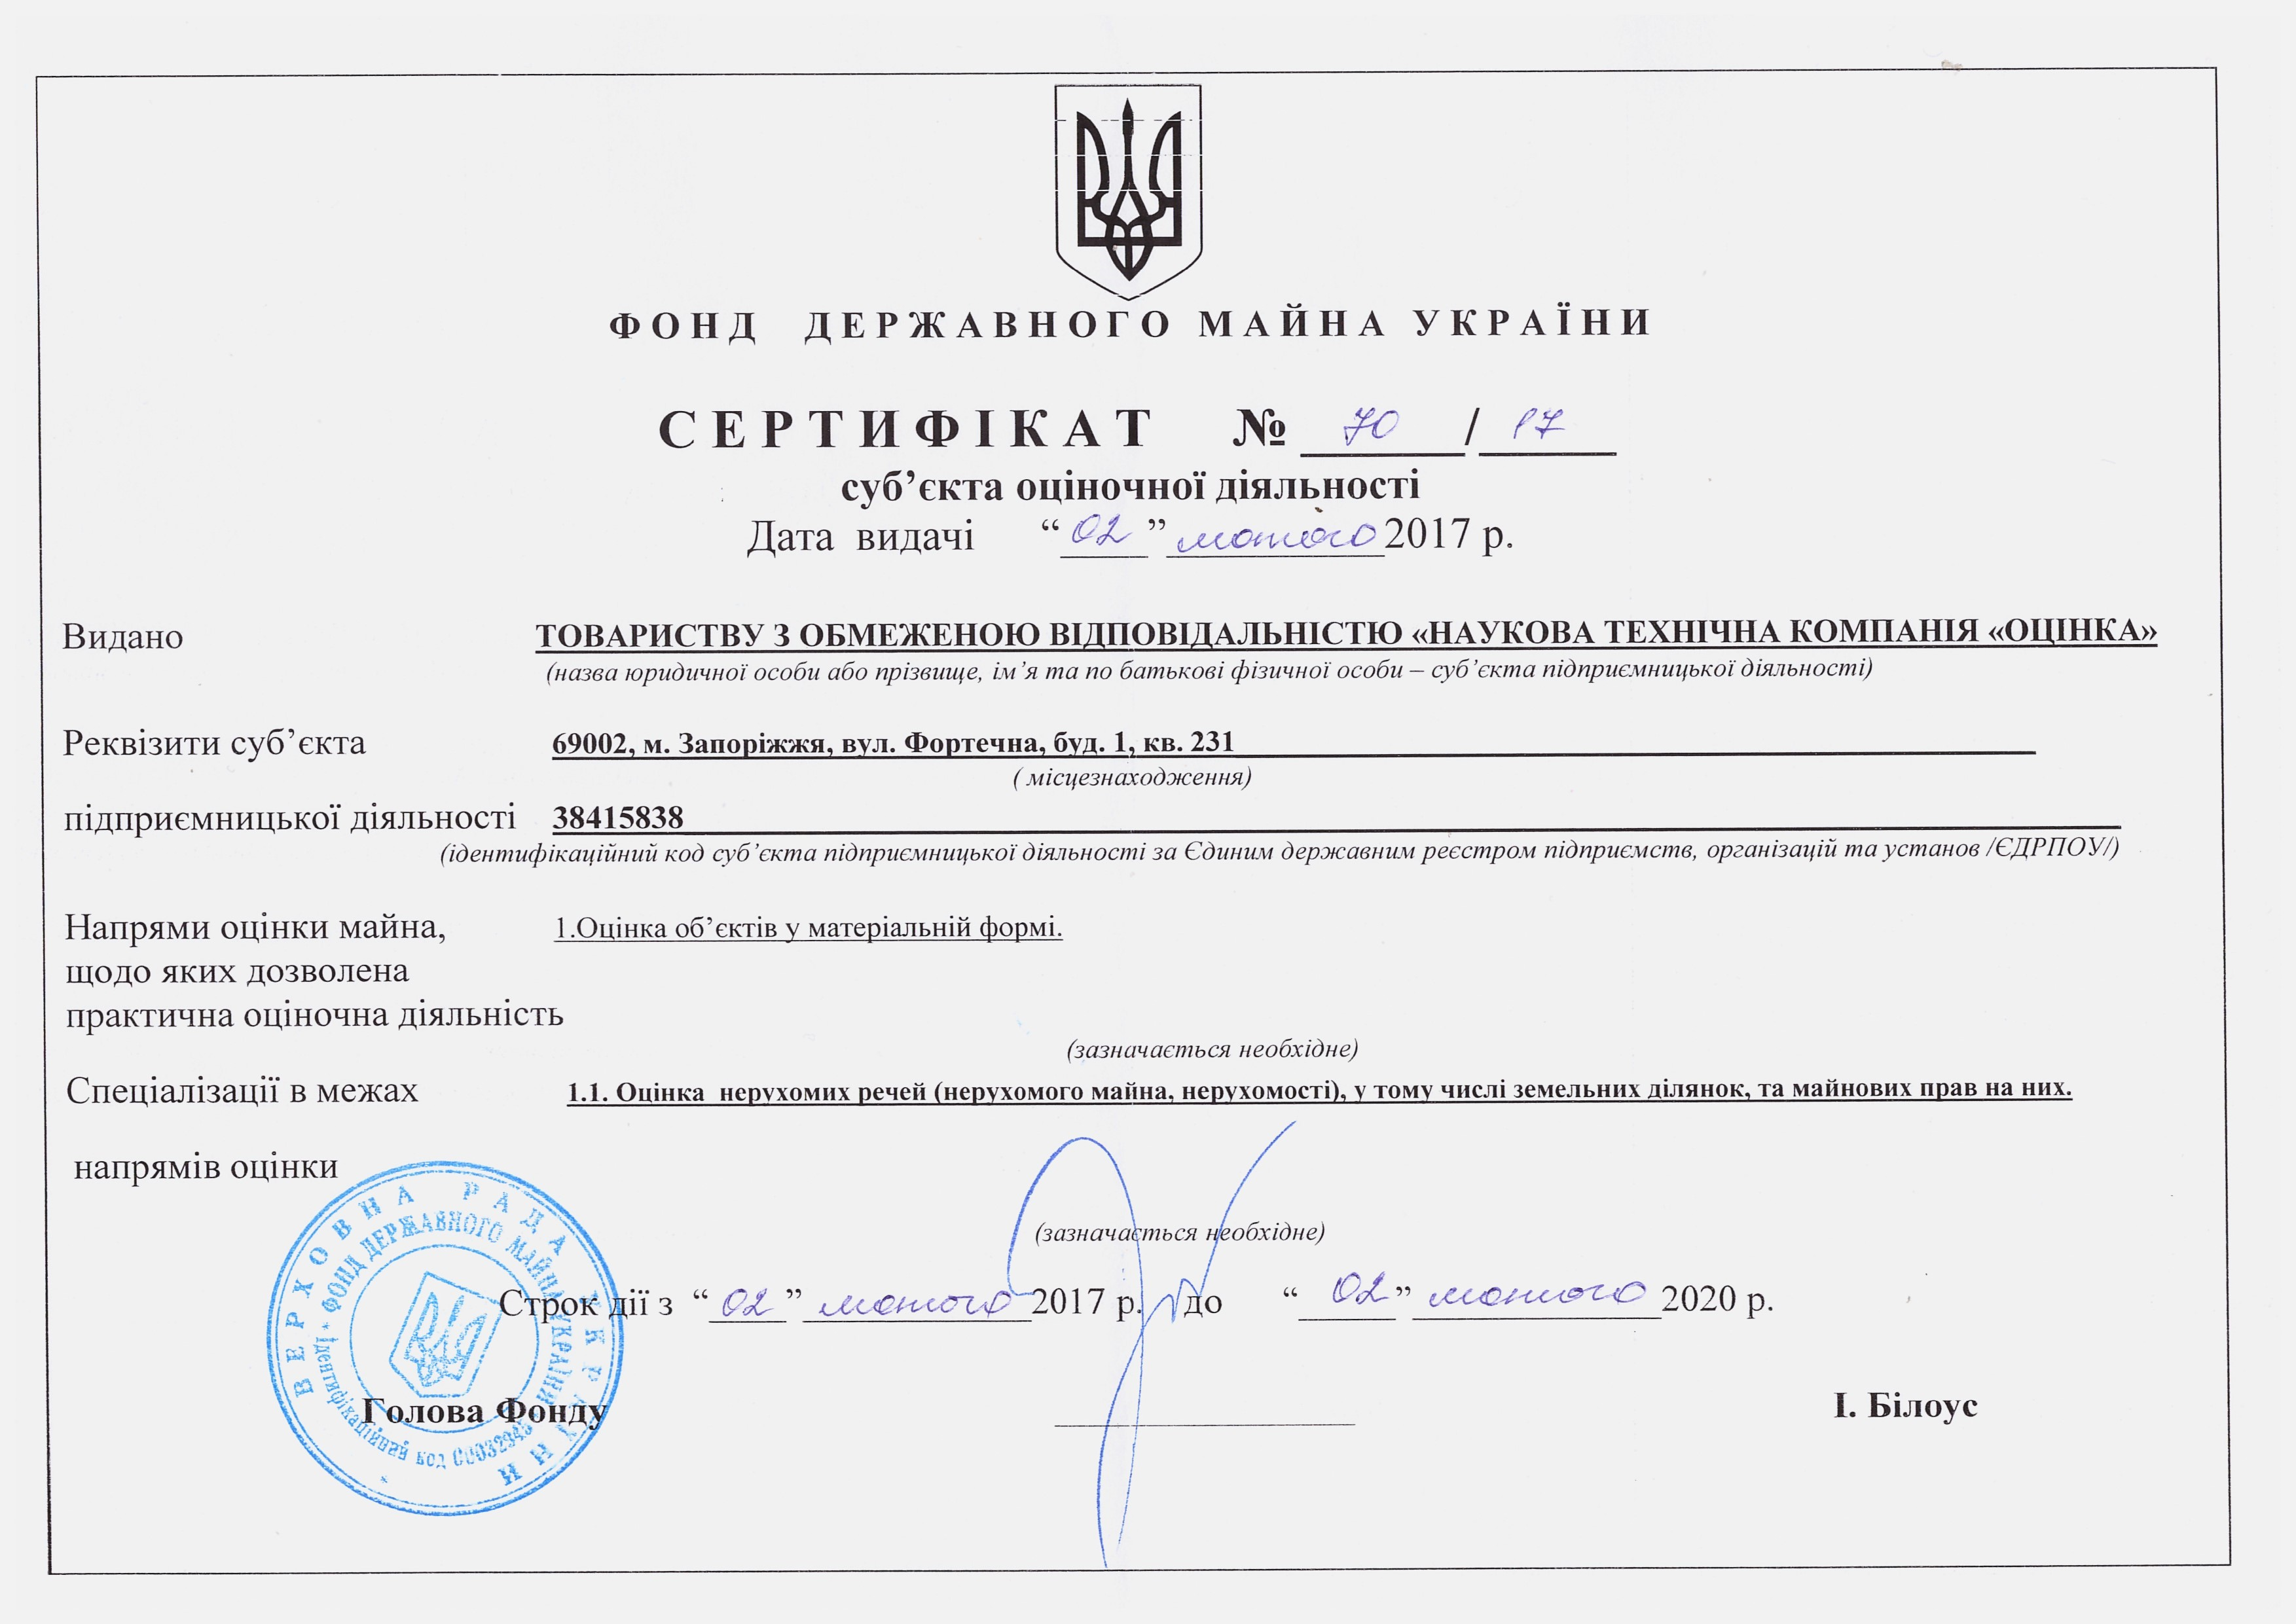 ФОНД ДЕРЖАВНОГО МАЙНА УКРАЇНИ
СЕРТИФІКАТ № 70 / 17
суб’єкта оціночної діяльності
Дата видачі “02” лютого 2017 р.
Видано ТОВАРИСТВУ З ОБМЕЖЕНОЮ ВІДПОВІДАЛЬНІСТЮ «НАУКОВА ТЕХНІЧНА КОМПАНІЯ «ОЦІНКА»
(назва юридичної особи або прізвище, ім’я та по батькові фізичної особи – суб’єкта підприємницької діяльності)
Реквізити суб’єкта 69002, м. Запоріжжя, вул. Фортечна, буд. 1, кв. 231
( місцезнаходження)
підприємницької діяльності 38415838
(ідентифікаційний код суб’єкта підприємницької діяльності за Єдиним державним реєстром підприємств, організацій та установ /ЄДРПОУ/)
Напрями оцінки майна, 1.Оцінка об’єктів у матеріальній формі.
щодо яких дозволена
практична оціночна діяльність
(зазначається необхідне)
Спеціалізації в межах 1.1. Оцінка нерухомих речей (нерухомого майна, нерухомості), у тому числі земельних ділянок, та майнових прав на них.
напрямів оцінки
(зазначається необхідне)
Строк дії з “02” лютого 2017 р. до “02” лютого 2020 р.
Голова Фонду І. Білоус
ВЕРХОВНА РАДА УКРАЇНИ
ФОНД ДЕРЖАВНОГО МАЙНА УКРАЇНИ
Ідентифікаційний код 00032945